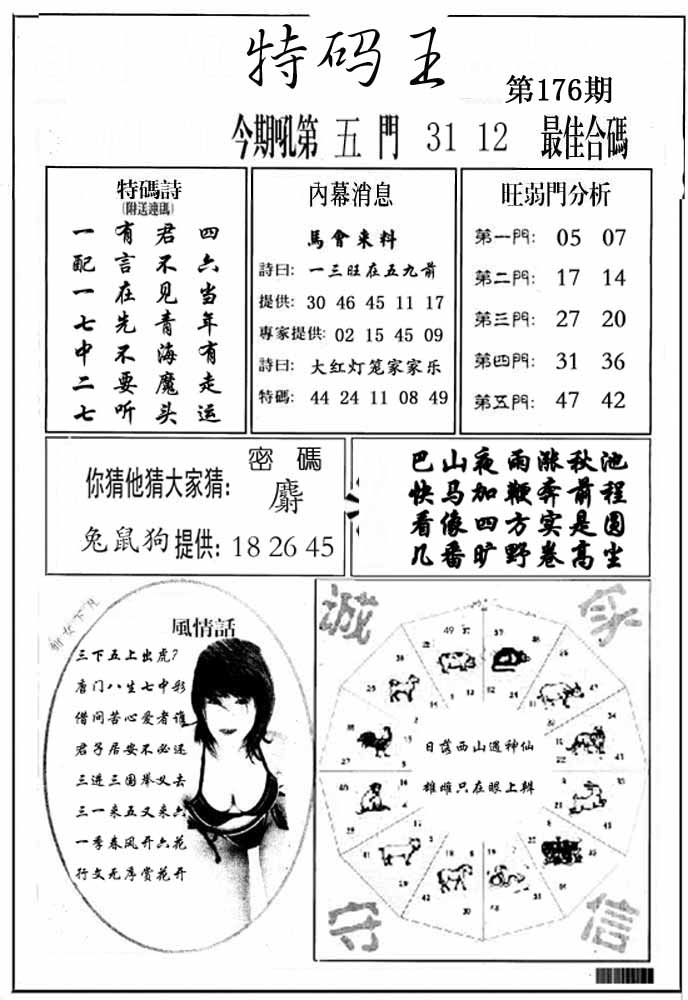 特码王
第176期
今期吼第 五 門 31 12 最佳合碼
特碼詩
(附送連碼)
四六当年有走运
君不见青海魔头
有言在先不要听
一配一七中二七
內幕消息
馬會来料
詩曰: 一三旺在五九前
提供: 30 46 45 11 17
專家提供: 02 15 45 09
詩曰: 大红灯笼家家乐
特碼: 44 24 11 08 49
旺弱門分析
第一門: 05 07
第二門: 17 14
第三門: 27 20
第四門: 31 36
第五門: 47 42
密碼
你猜他猜大家猜: 麝
兔鼠狗 提供: 18 26 45
巴山夜雨涨秋池
快马加鞭奔前程
看像四方实是圆
几番旷野卷高尘
仙女下凡
風情話
三下五上出虎?
唐门八生七中彩
借问苦心爱者谁
君子居安不必迷
三进三围举义去
三一来五又来六
一季春风开六花
行文无序赏花开
诚
守
信
日落西山遇神仙
雄雌只在眼上辩